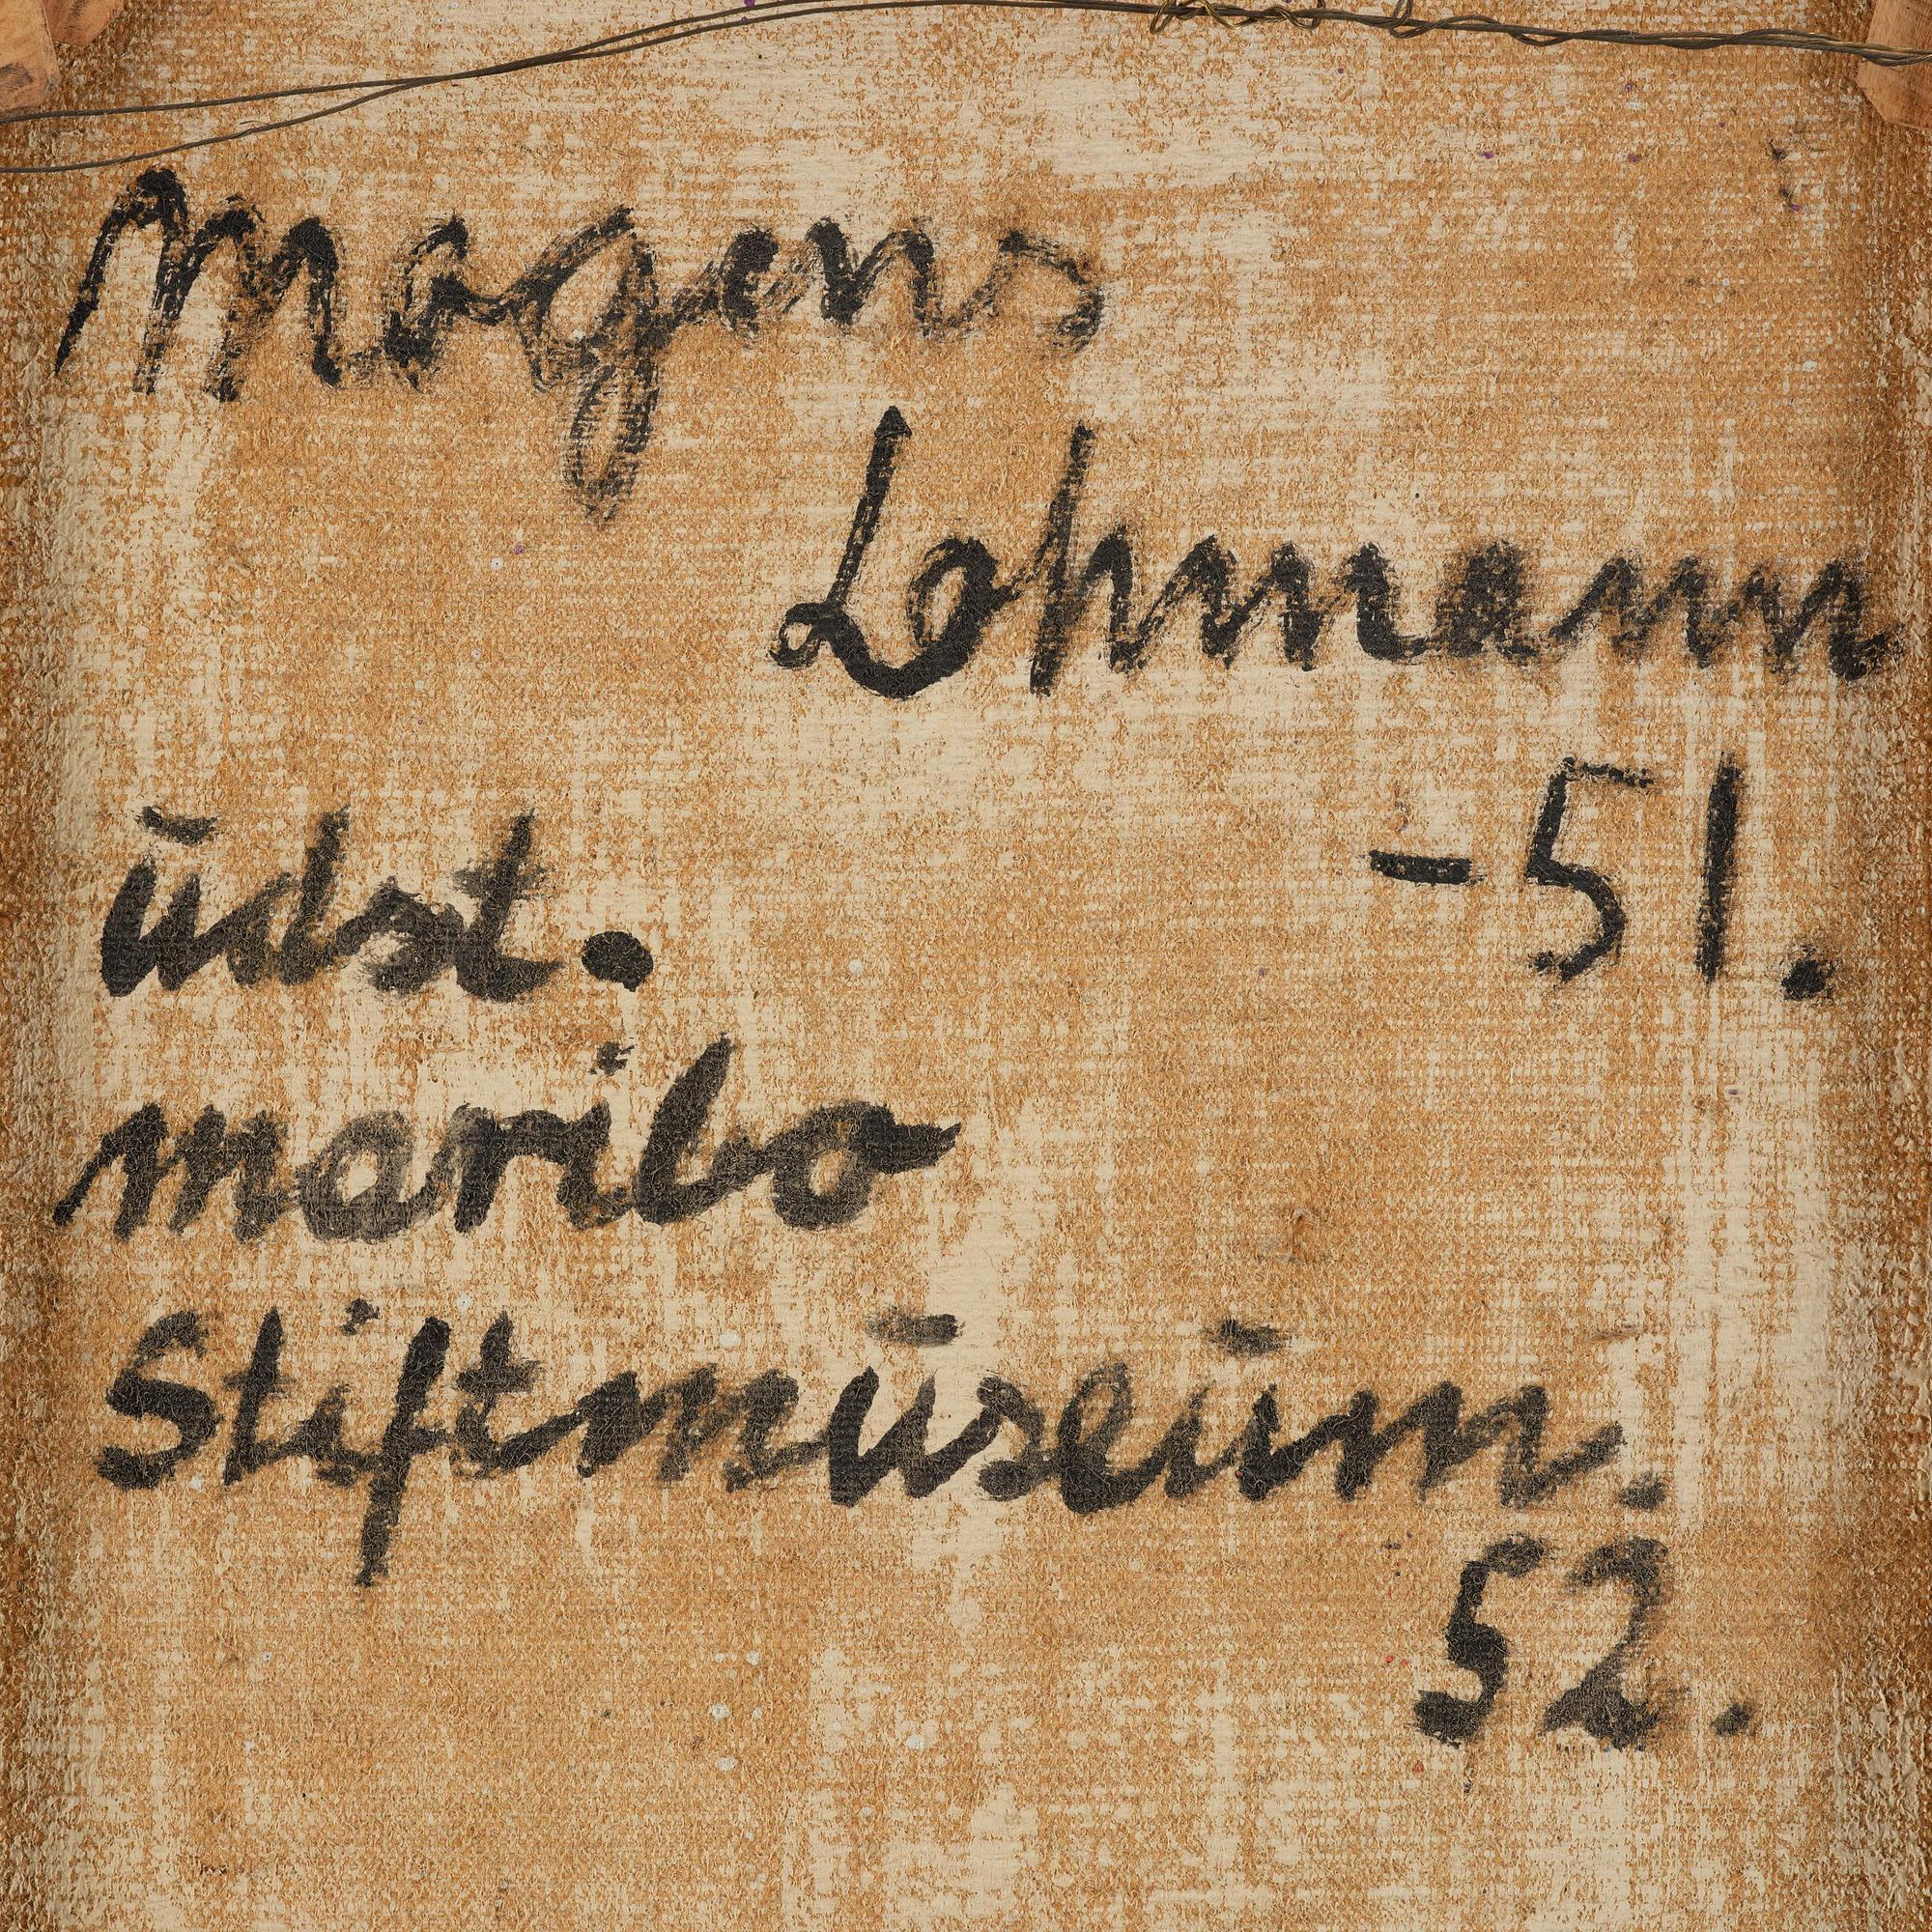 Mogens
Lohmann
-51.
ūdst.
maribo
Stiftmūseūm.
52.